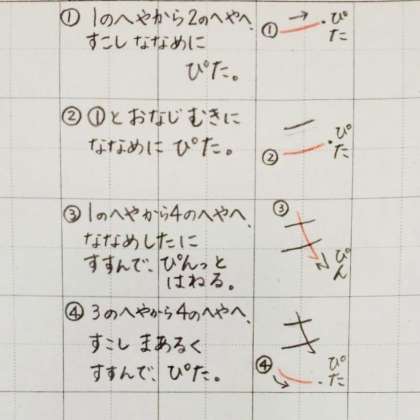 ① 1のへやから2のへやへ、
すこしななめに
ぴた。
① ぴた
② ①とおなじむきに
ななめに ぴた。
② ぴた
③ 1のへやから4のへやへ、
ななめしたに
すすんで、ぴんっと
はねる。
③ ぴん
④ 3のへやから4のへやへ、
すこし まあるく
すすんで、ぴた。
④ ぴた